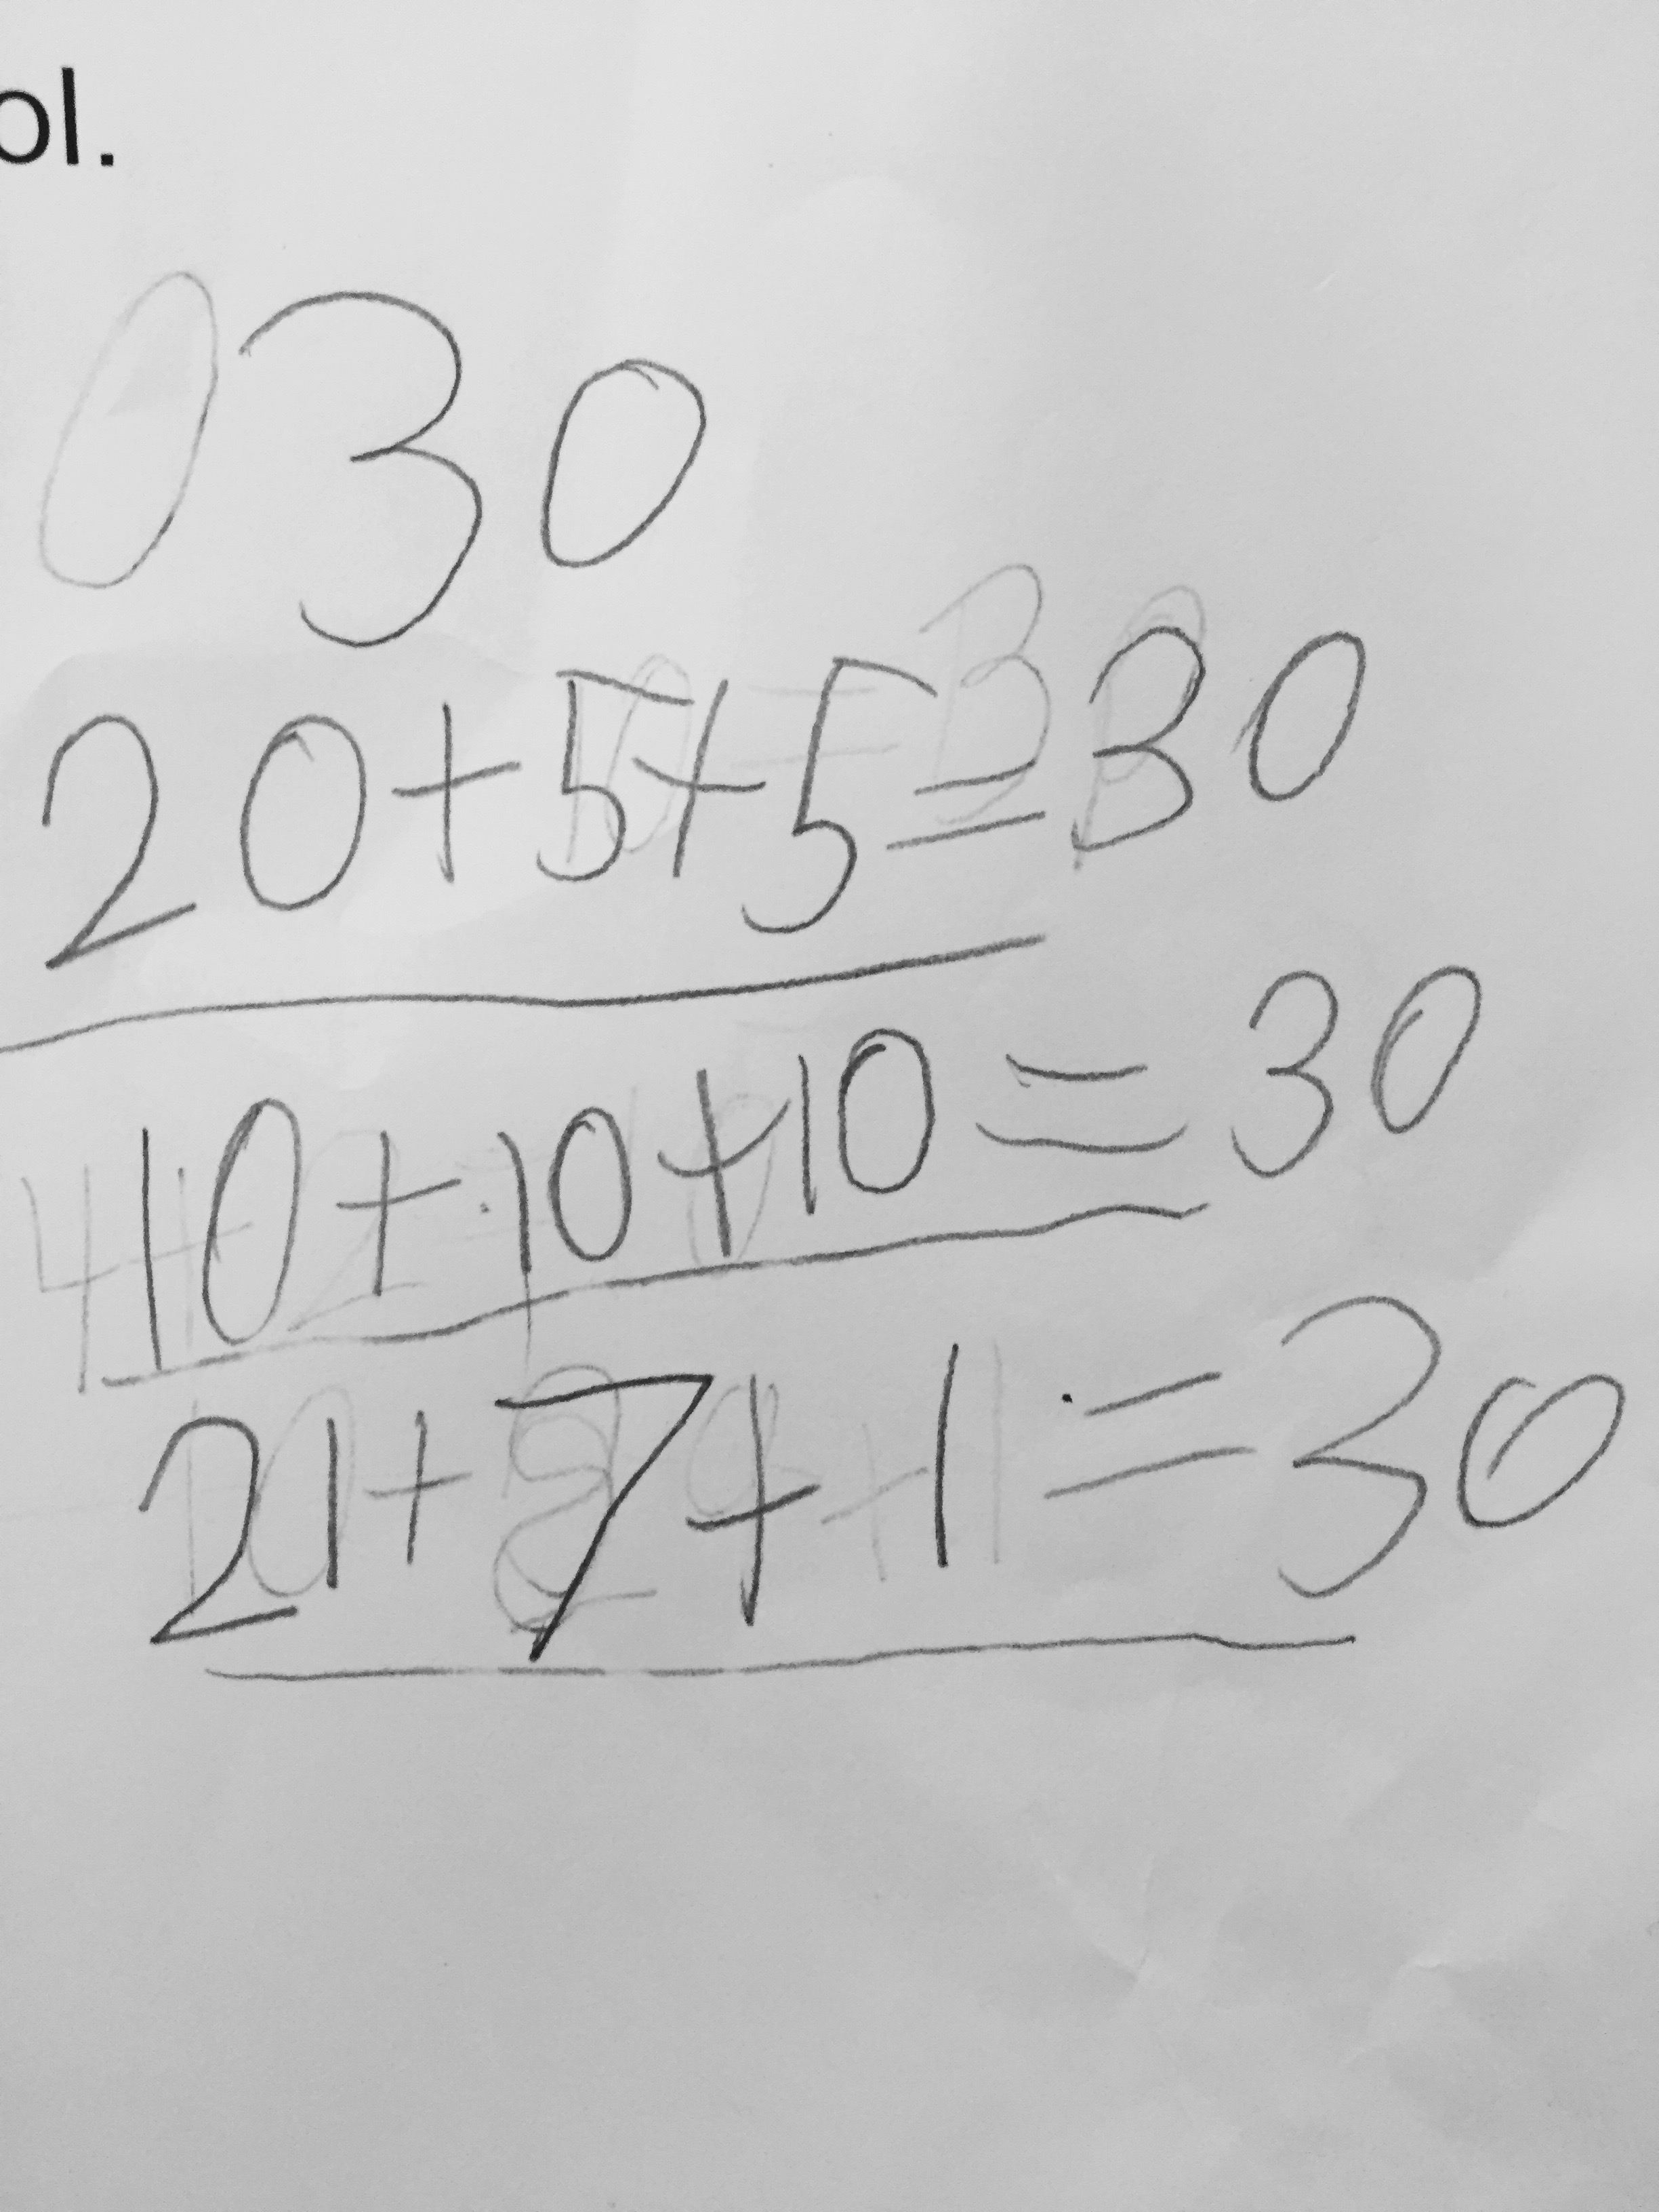 ol.
30
20+5+5=30
10+10+10=30
21+7+1=30